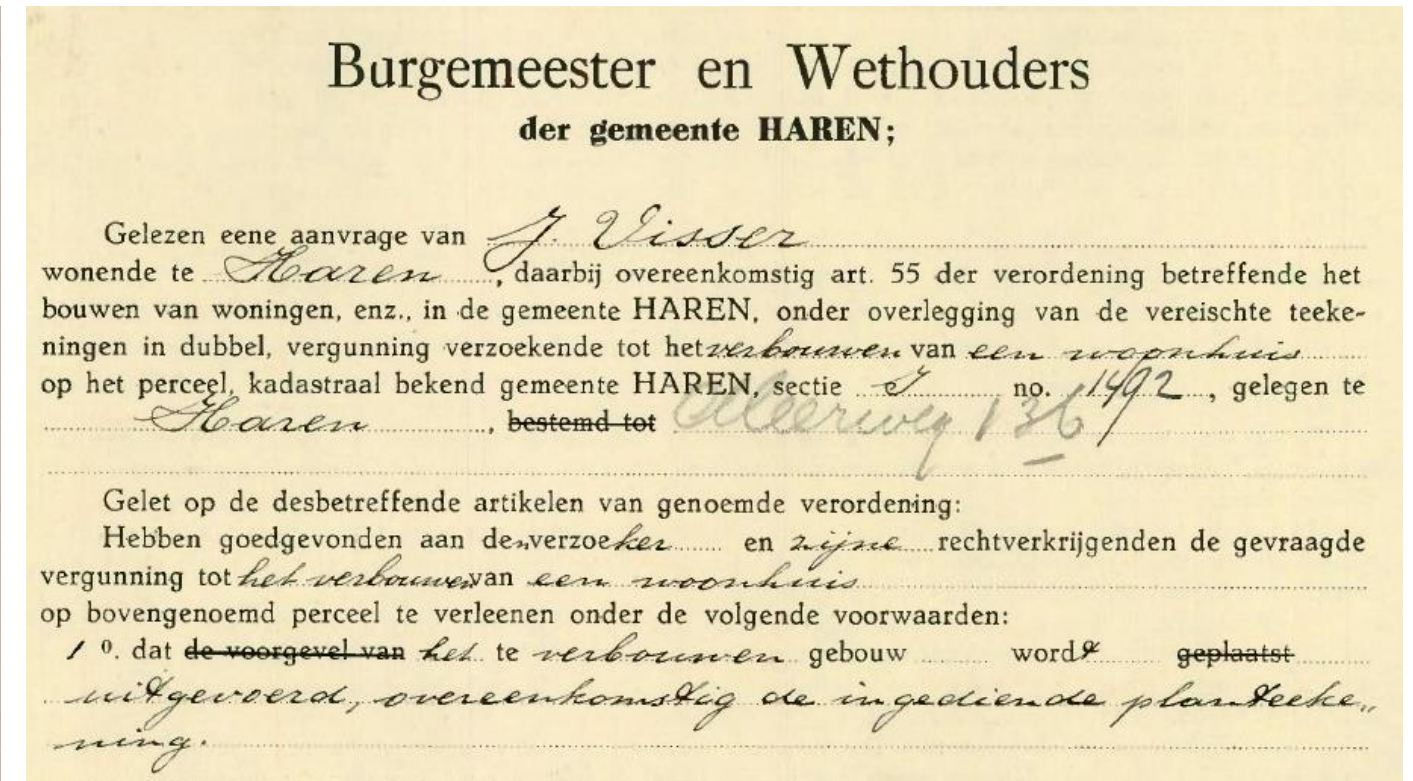 Burgemeester en Wethouders
der gemeente HAREN;
Gelezen eene aanvrage van J. Visser
wonende te Haren, daarbij overeenkomstig art. 55 der verordening betreffende het
bouwen van woningen, enz., in de gemeente HAREN, onder overlegging van de vereischte teeke-
ningen in dubbel, vergunning verzoekende tot het verbouwen van een woonhuis
op het perceel, kadastraal bekend gemeente HAREN, sectie J no. 1492, gelegen te
Haren, bestemd tot Meerweg 136
Gelet op de desbetreffende artikelen van genoemde verordening:
Hebben goedgevonden aan den verzoeker en zijne rechtverkrijgenden de gevraagde
vergunning tot het verbouwen van een woonhuis
op bovengenoemd perceel te verleenen onder de volgende voorwaarden:
1°. dat de voorgevel van het te verbouwen gebouw wordt geplaatst
uitgevoerd, overeenkomstig de ingediende planteeke„
ning.